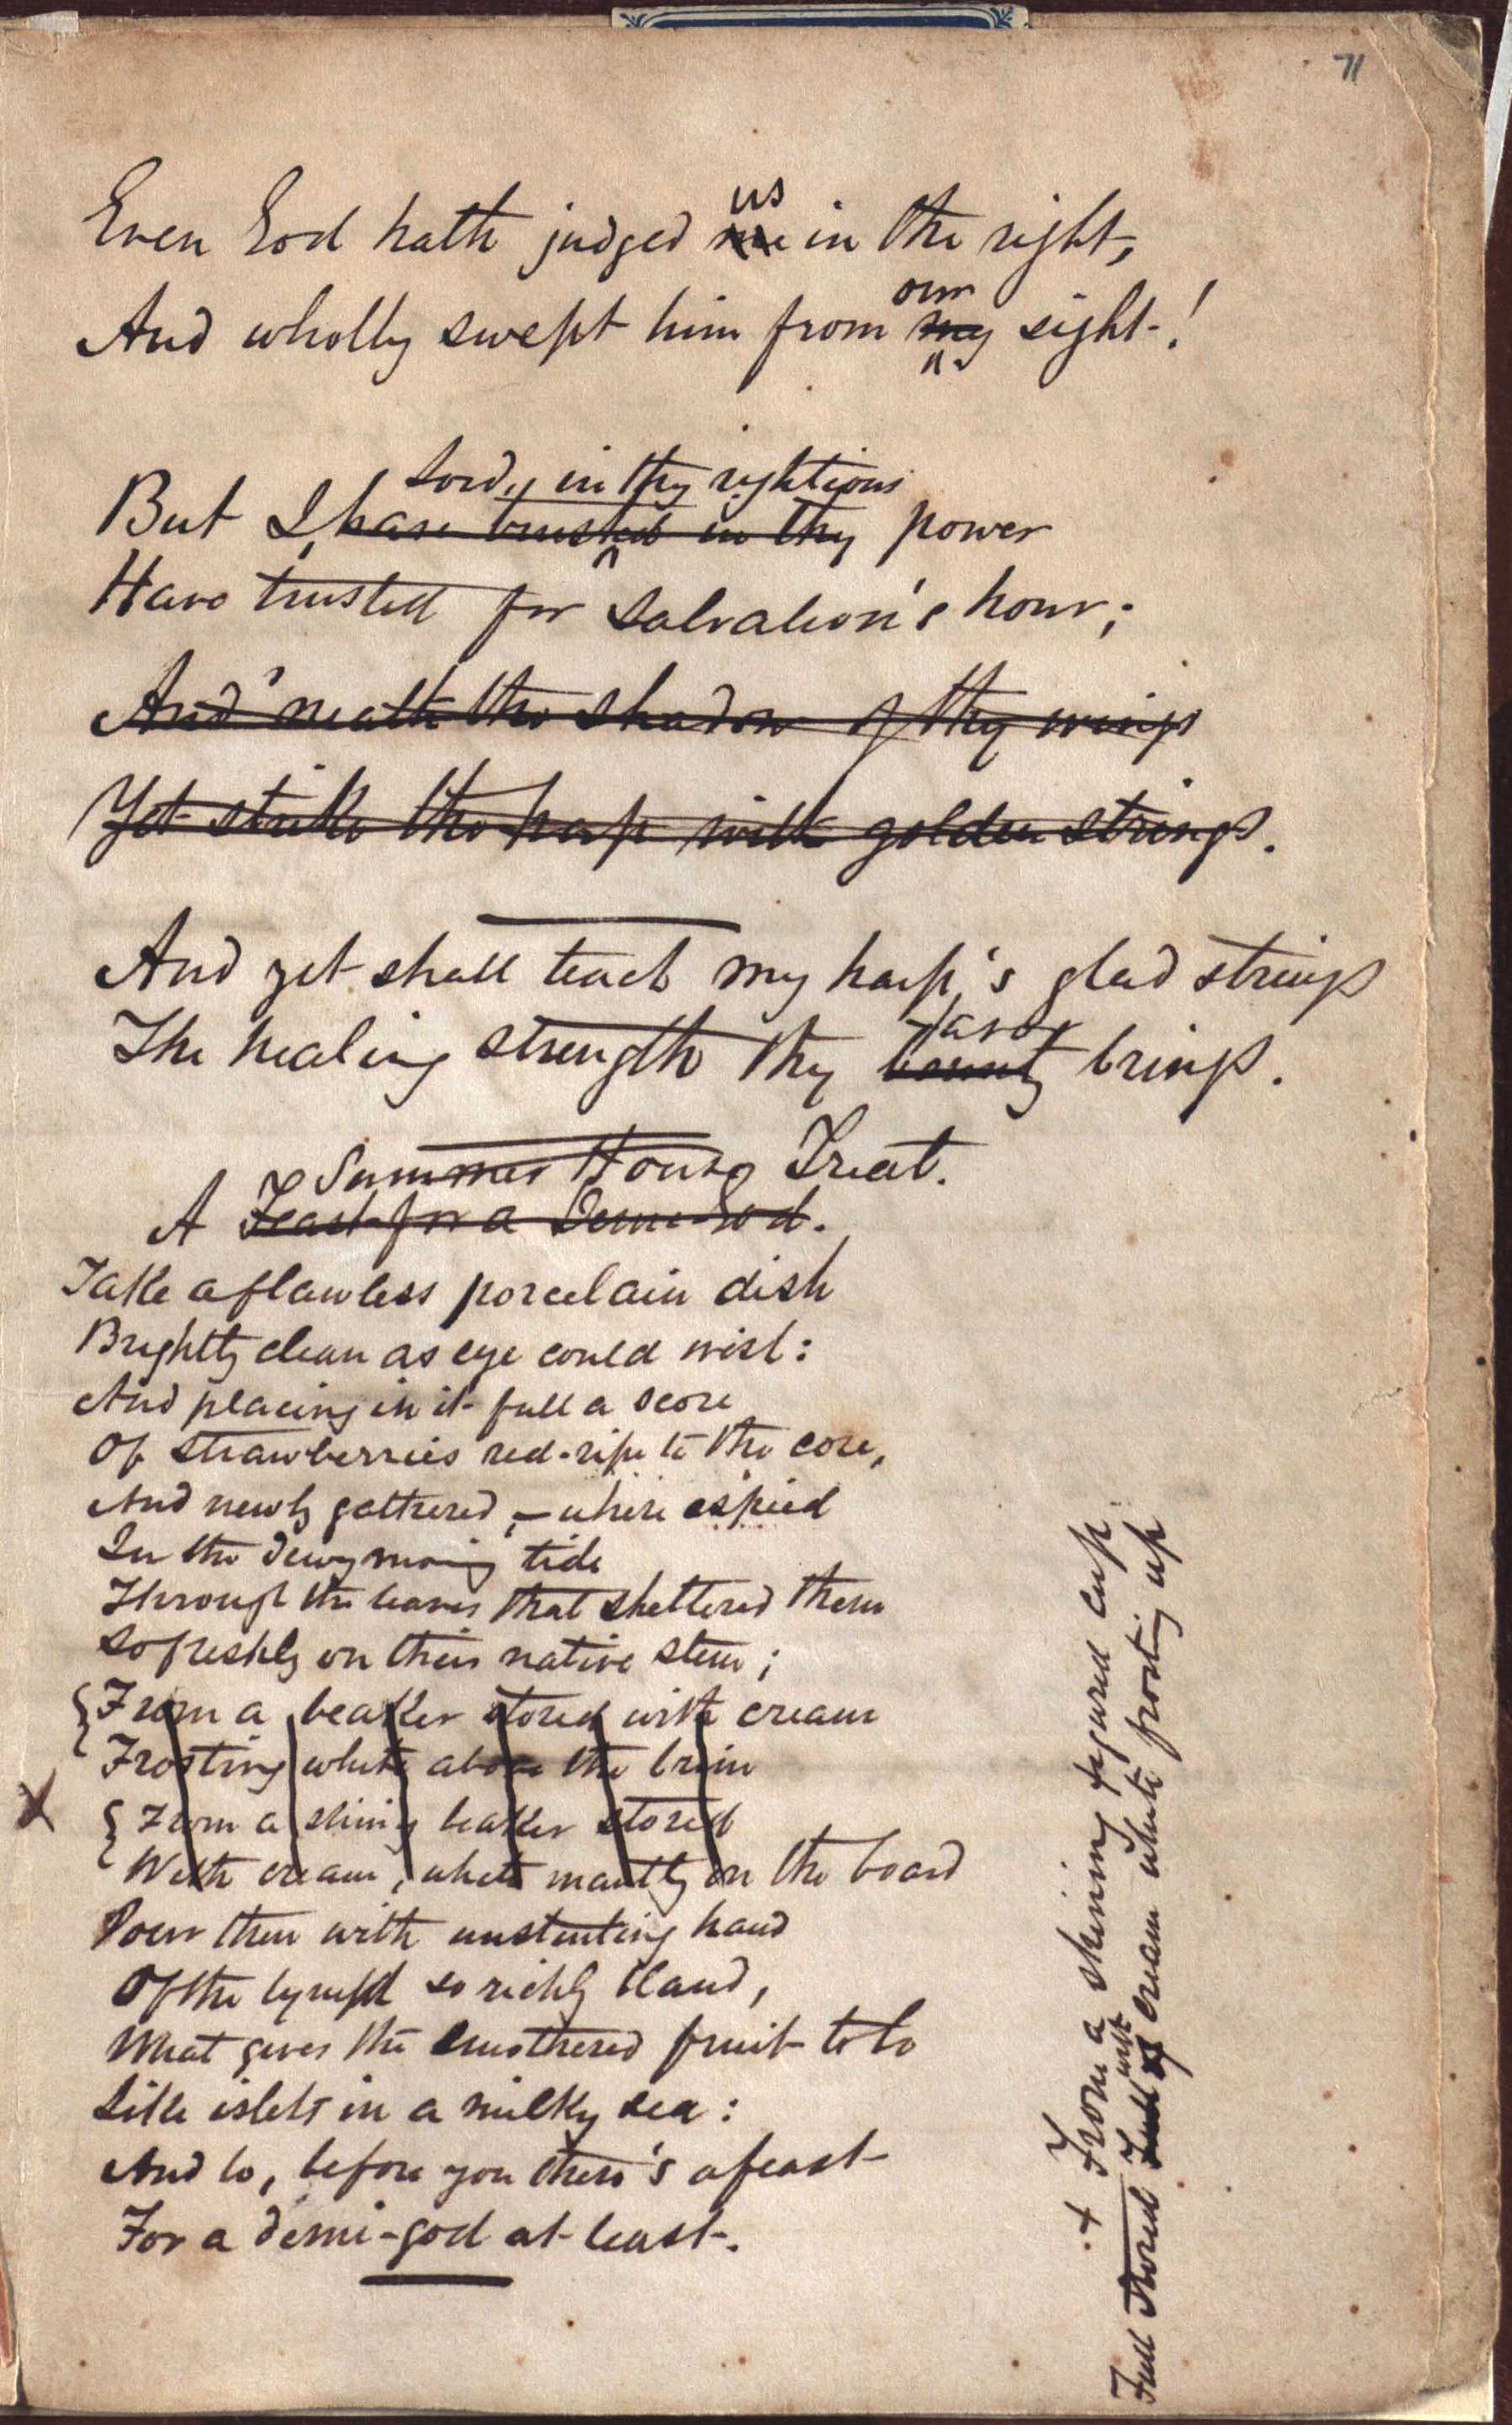 71
us
Even God hath judged me in the right,
our
And wholly swept him from my sight!
Lord, in thy rightious
But I, have trusted in thy power
Have trusted for salvation's hour;
And 'neath the shadow of thy wings
Yet strike the harp with golden strings.
And yet shall teach my harp's glad strings
favor
The healing strength thy bounty brings.
Summer House Treat.
A Feast for a Demi-God.
Take a flawless porcelain dish
Brightly clean as eye could wish:
And placing in it full a score
Of strawberries red-ripe to the core,
And newly gathered, – where espied
In the dewy morning tide
Through the leaves that sheltered them
So freshly on their native stem;
From a beaker stored with cream
Frosting white above the brim
X
From a shining beaker stored
With cream, white mantling on the board
Pour then with unstinting hand
Of the lymph so richly bland,
What gives the smothered fruit to be
Like islets in a milky sea:
And lo, before you there's a feast
For a demi-god at least.
+ From a shining figured cup
with
Full Stored Full of cream white frosting up